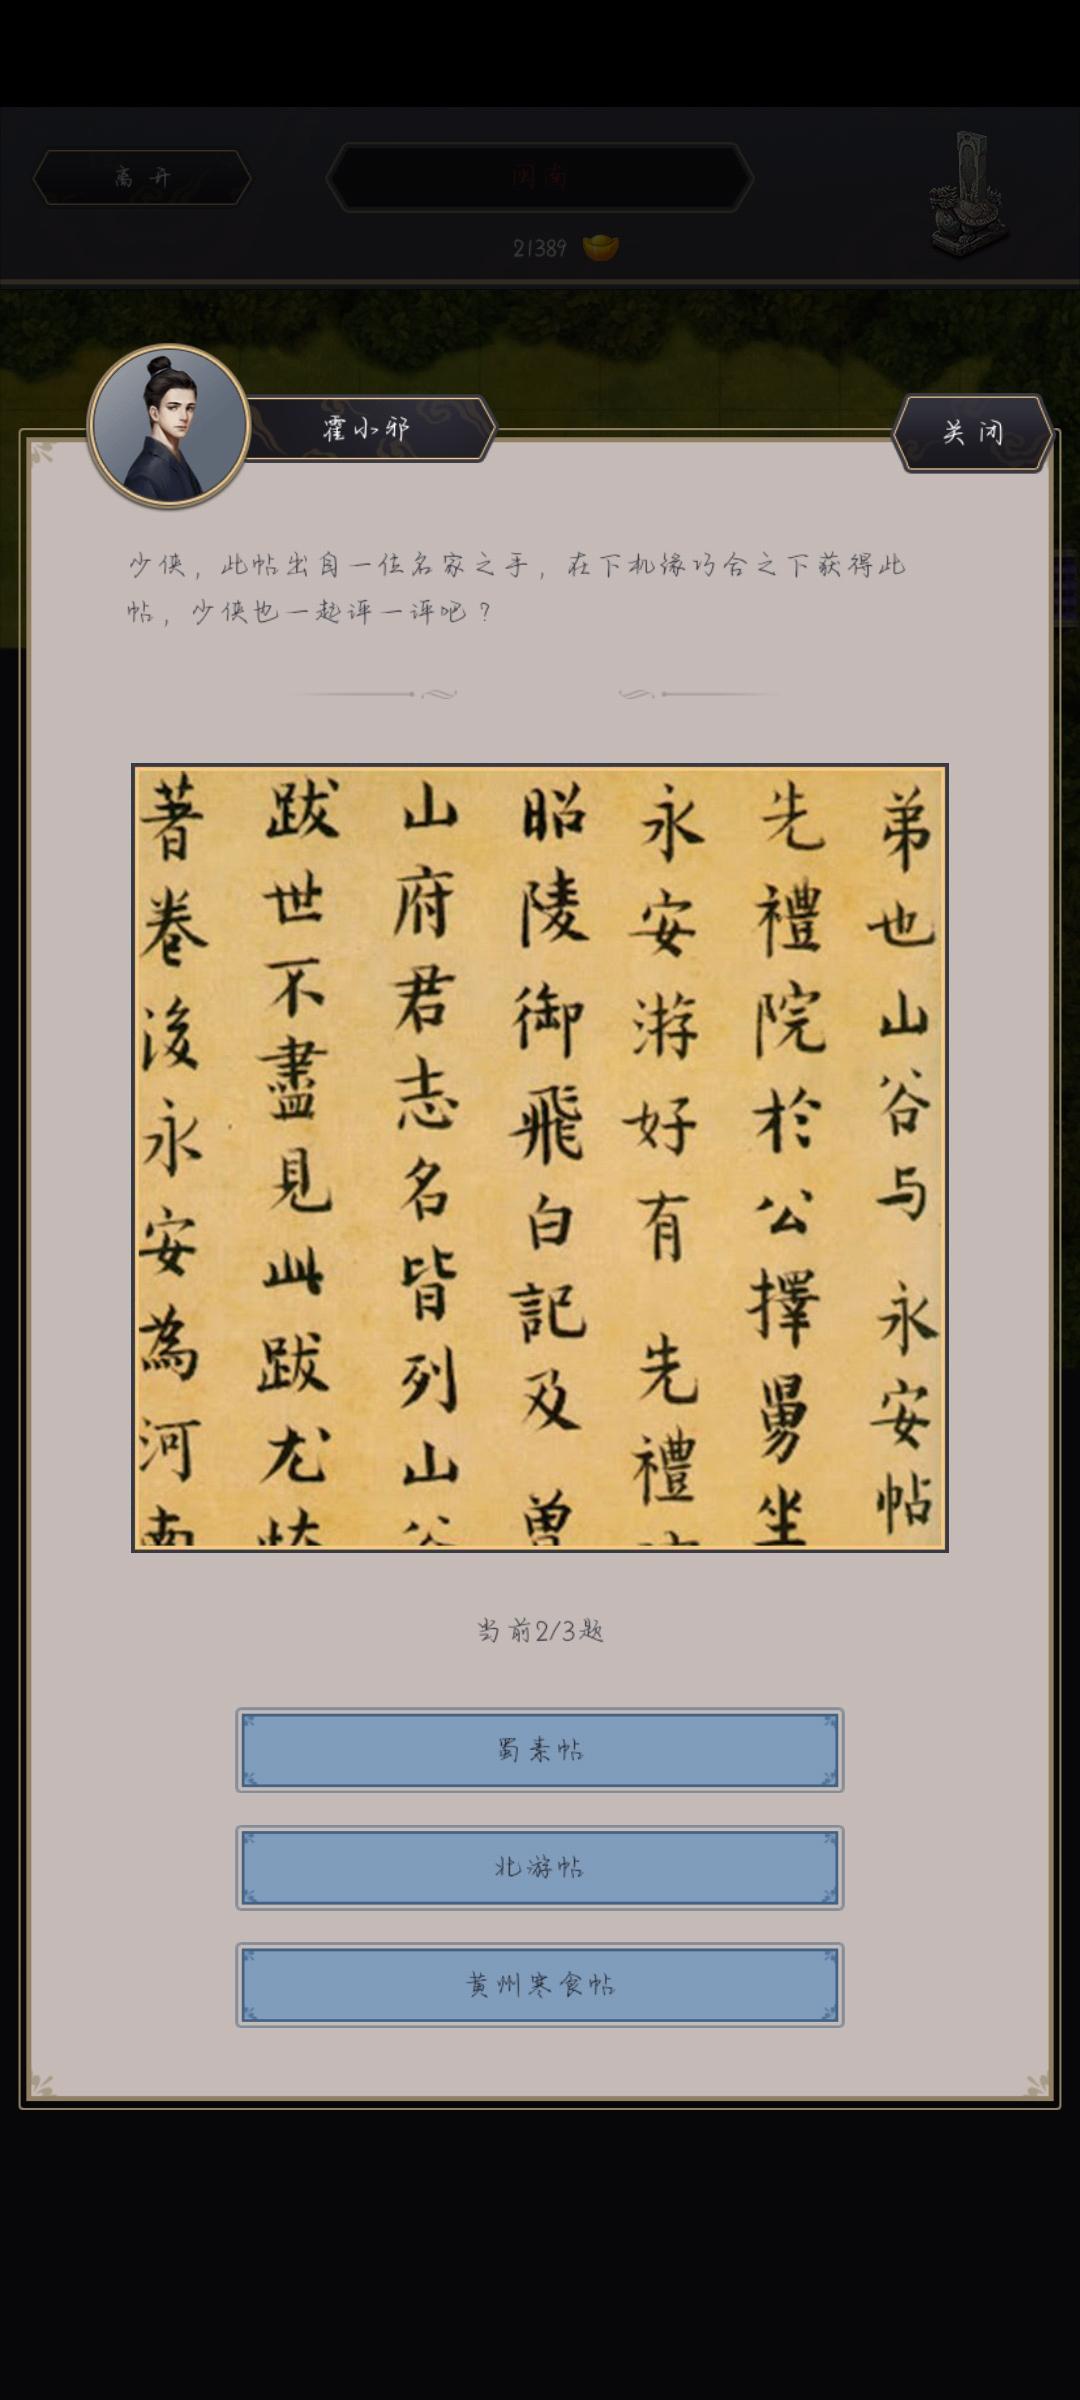 离开
闽南
21389
霍小邪
关闭
少侠，此帖出自一位名家之手，在下机缘巧合之下获得此
帖，少侠也一起评一评吧？
弟也山谷与永安帖
先禮院於公擇舅坐
永安游好有先禮
昭陵御飛白記及曽
山府君志名皆列山谷
跋世不盡見此跋尤恢
著卷後永安為河南
当前2/3题
蜀素帖
北游帖
黄州寒食帖